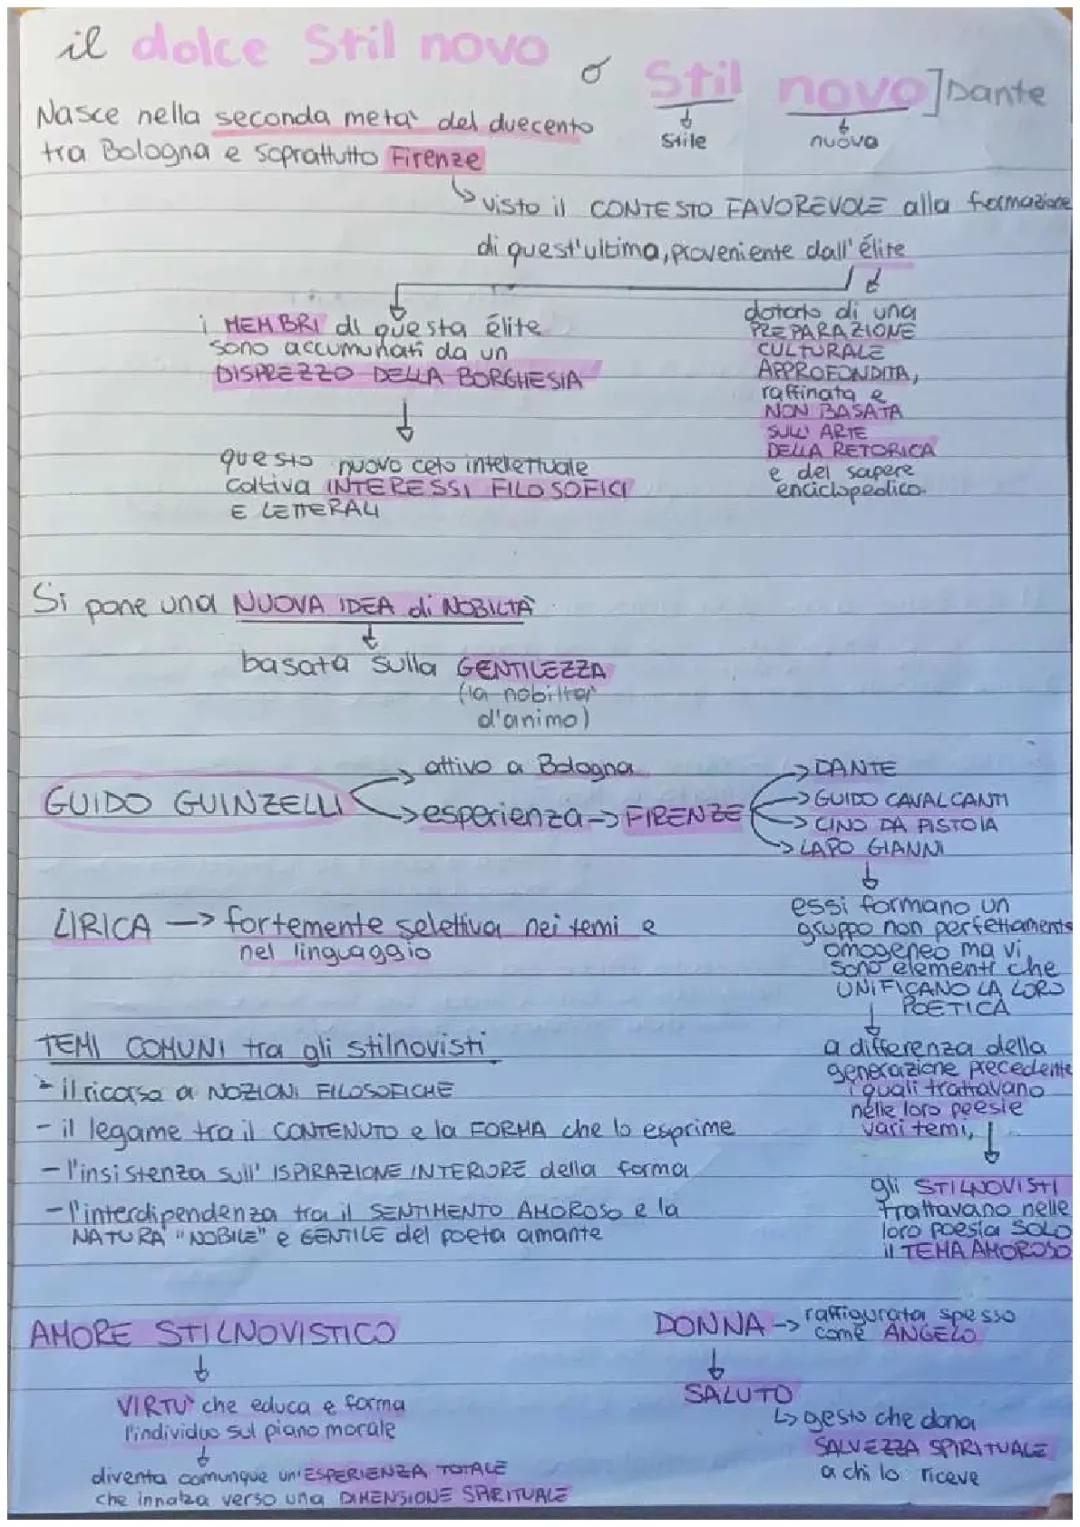 il dolce Stil novo o Stil novo] Dante
Stile nuovo
Nasce nella seconda metà del duecento
tra Bologna e soprattutto Firenze
↳ visto il CONTESTO FAVOREVOLE alla formazione
di quest'ultima, proveniente dall'élite
i MEMBRI di questa élite
sono accumunati da un
DISPREZZO DELLA BORGHESIA
↓
questo nuovo ceto intelettuale
coltiva INTERESSI FILOSOFICI
E LETTERALI
dotato di una
PREPARAZIONE
CULTURALE
APPROFONDITA,
raffinata e
NON BASATA
SULL'ARTE
DELLA RETORICA
e del sapere
enciclopedico.
Si pone una NUOVA IDEA di NOBILTÀ
↓
basata sulla GENTILEZZA
(la nobiltà
d'animo)
GUIDO GUINZELLI
→ attivo a Bologna
→ esperienza → FIRENZE
→ DANTE
→ GUIDO CAVALCANTI
→ CINO DA PISTOIA
→ LAPO GIANNI
↓
essi formano un
gruppo non perfettamente
omogeneo ma vi
sono elementi che
UNIFICANO LA LORO
POETICA
↓
a differenza della
generazione precedente
i quali trattavano
nelle loro poesie
vari temi,
↓
gli STILNOVISTI
trattavano nelle
loro poesia SOLO
il TEMA AMOROSO
LIRICA → fortemente selettiva nei temi e
nel linguaggio
TEMI COMUNI tra gli stilnovisti
- il ricorso a NOZIONI FILOSOFICHE
- il legame tra il CONTENUTO e la FORMA che lo esprime
- l'insistenza sull'ISPIRAZIONE INTERIORE della forma
- l'interdipendenza tra il SENTIMENTO AMOROSO e la
NATURA "NOBILE" e GENTILE del poeta amante
AMORE STILNOVISTICO
↓
VIRTÙ che educa e forma
l'individuo sul piano morale
↓
diventa comunque un'ESPERIENZA TOTALE
che innalza verso una DIMENSIONE SPIRITUALE
DONNA → raffigurata spesso
come ANGELO
↓
SALUTO
↳ gesto che dona
SALVEZZA SPIRITUALE
a chi lo riceve